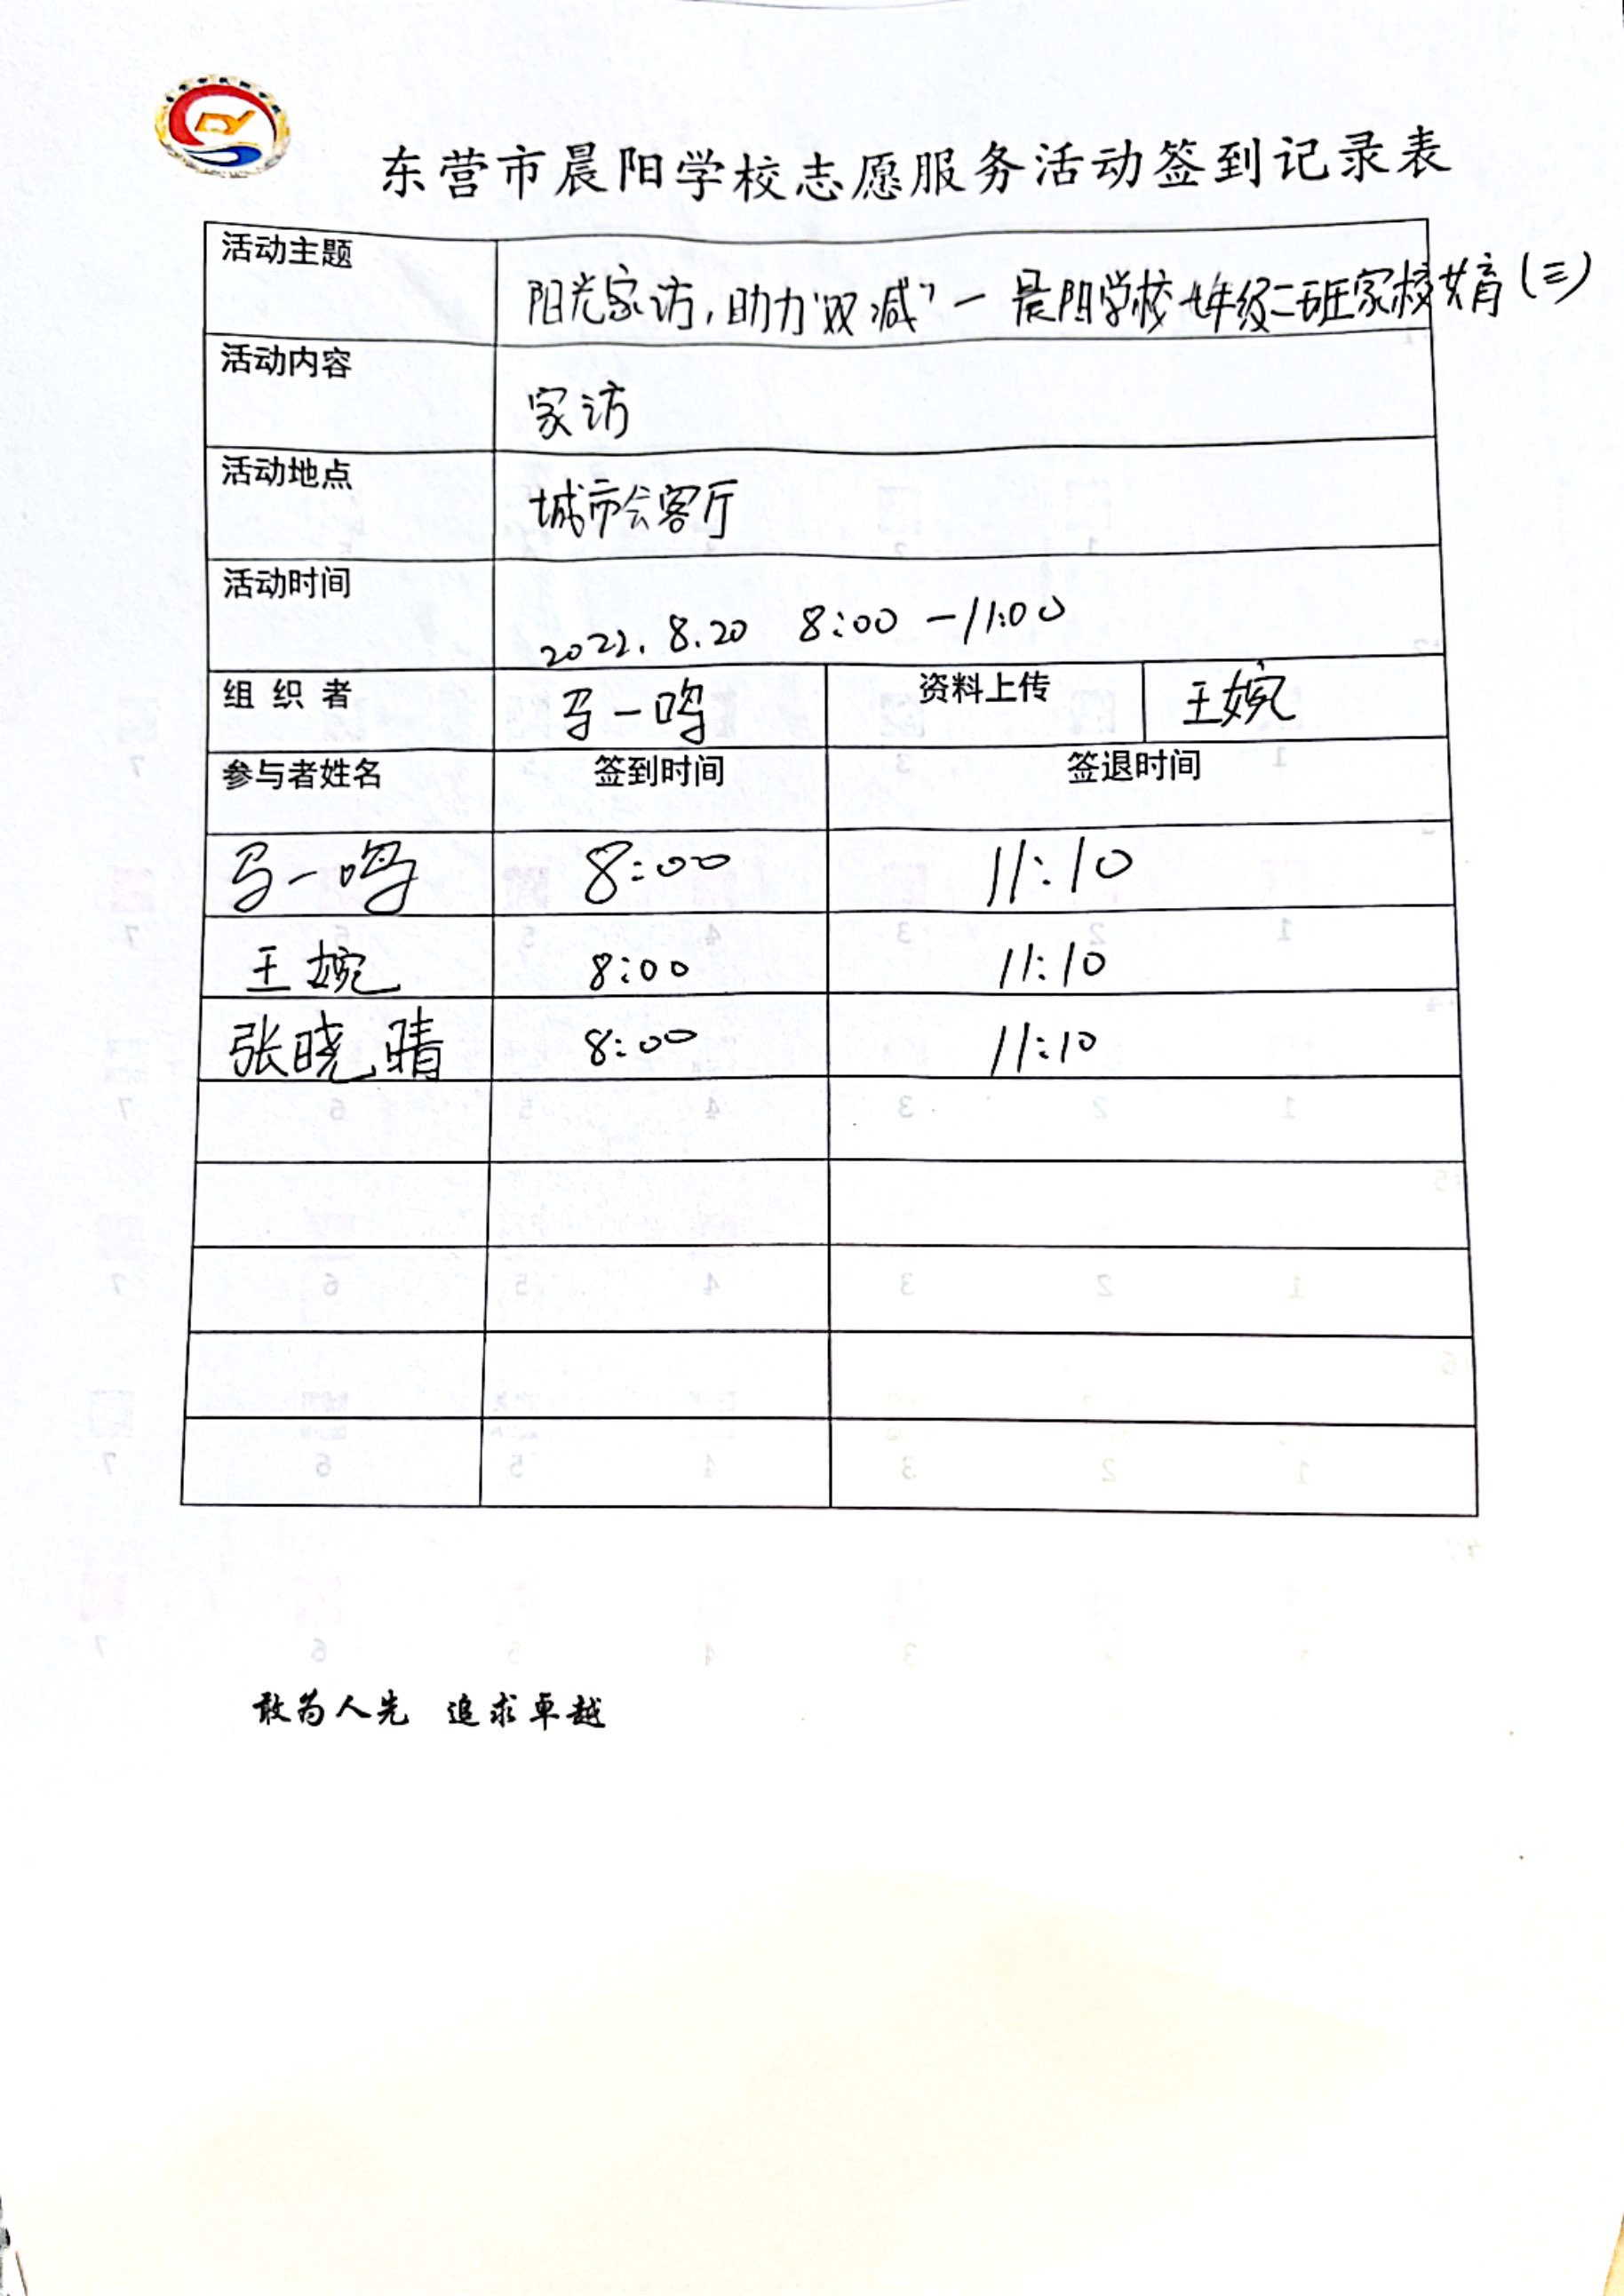 东营市晨阳学校志愿服务活动签到记录表
活动主题 阳光家访,助力"双减"一晨阳学校七年级二班家校共育(三)
活动内容 家访
活动地点 城市会客厅
活动时间 2022.8.20 8:00-11:00
组 织 者 马一鸣 资料上传 王婉
参与者姓名 签到时间 签退时间
马一鸣 8:00 11:10
王婉 8:00 11:10
张晓晴 8:00 11:10
敢为人先 追求卓越